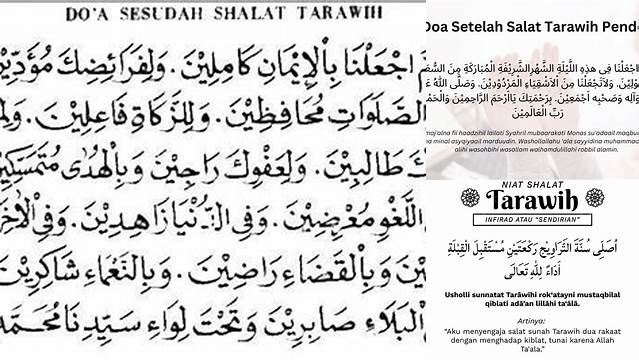 DO'A SESUDAH SHALAT TARAWIH
اجْعَلْنَا بِالْإِيْمَانِ كَامِلِيْنَ. وَلِفَرَائِضِكَ مُؤَدِّيْنَ
الصَّلَوَاتِ مُحَافِظِيْنَ. وَلِلزَّكَاةِ فَاعِلِيْنَ.
طَالِبِيْنَ. وَلِعَفْوِكَ رَاجِيْنَ وَبِالْهُدَى مُتَمَسِّكِيْنَ
اللَّغْوِ مُعْرِضِيْنَ. وَفِى الدُّنْيَا زَاهِدِيْنَ. وَفِى
وَبِالْقَضَاءِ رَاضِيْنَ. وَبِالنَّعْمَاءِ شَاكِرِيْنَ
الْبَلَاءِ صَابِرِيْنَ وَتَحْتَ لِوَاءِ سَيِّدِنَا
Doa Setelah Salat Tarawih
فِى هٰذِهِ اللَّيْلَةِ الشَّهْرِ الشَّرِيْفَةِ الْمُبَارَكَةِ مِنَ
وَلَاتَجْعَلْنَا مِنَ الْأَشْقِيَاءِ الْمَرْدُوْدِيْنَ. وَصَلَّى اللهُ
وَآلِهِ وَصَحْبِهِ أَجْمَعِيْنَ. بِرَحْمَتِكَ يَاأَرْحَمَ الرَّاحِمِيْنَ
رَبِّ الْعَالَمِيْنَ
fii haadzihil lailati Syahril mubaarakati Monas su'adaail
minal asyqiyaail marduudin. Washollallahu 'ala sayyidina
alihi wasohbihi wasallam walhamdulillahi robbil alamin.
NIAT SHALAT
Tarawih
INFIRAD ATAU "SENDIRIAN"
أُصَلِّى سُنَّةَ التَّرَاوِيْحِ رَكْعَتَيْنِ مُسْتَقْبِلَ الْقِبْلَةِ
أَدَاءً لِلّٰهِ تَعَالَى
Usholli sunnatat Tarāwīhi rok'atayni mustaqbilal
qiblati adā'an lillāhi ta'ālā.
Artinya:
"Aku menyengaja salat sunah Tarawih dua rakaat
dengan menghadap kiblat, tunai karena Allah
Ta'ala."